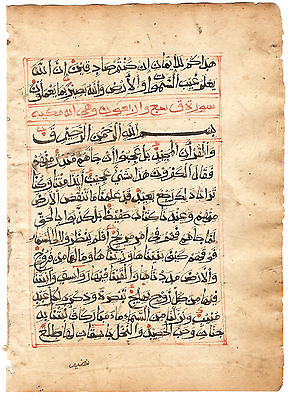 هداكم للايمان ان كنتم صادقين ان الله
يعلم غيب السموات والارض والله بصير بما تعملون
سورة ق واربعون وهي مكيه
بسم الله الرحمن الرحيم ق
والقران المجيد بل عجبوا ان جاءهم منذر منهم
فقال الكفرون هذا شيء عجيب ائذا متنا وكنا
ترابا ذلك رجع بعيد قد علمنا ما تنقص الارض
منهم وعندنا كتاب حفيظ بل كذبوا بالحق
لما جاءهم فهم في امر مريج افلم ينظروا الى السماء
فوقهم كيف بنيناها وزيناها وما لها من فروج
والارض مددناها والقينا فيها رواسي وانبتنا
فيها من كل زوج بهيج تبصرة وذكرى لكل عبد
منيب ونزلنا من السماء ماء مباركا فانبتنا به
جنات وحب الحصيد والنخل باسقات لها طلع